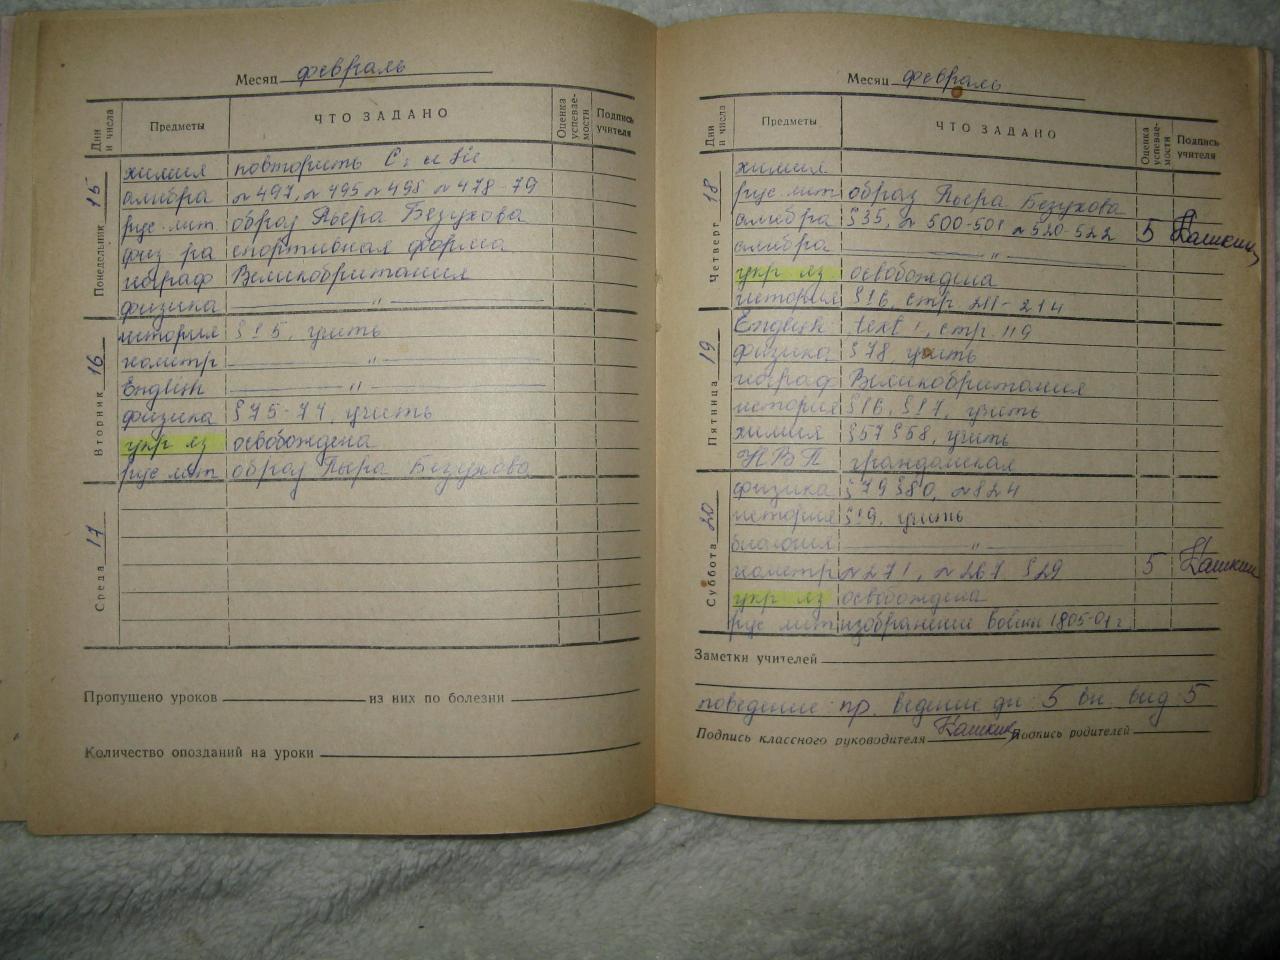 Месяц февраль
Дни и числа Предметы ЧТО ЗАДАНО Оценка успевае-мости Подпись учителя
Понедельник 15
химия повторить C и Si
алгебра № 497, № 495 № 498 № 478-79
рус. лит. образ Пьера Безухова
физ-ра спортивная форма
географ Великобритания
физика — " —
Вторник 16
история § 15, учить
геометр — " —
English — " —
физика § 75-77, учить
укр яз освобождена
рус лит образ Пьера Безухова
Среда 17
Пропущено уроков из них по болезни
Количество опозданий на уроки
Месяц февраль
Дни и числа Предметы ЧТО ЗАДАНО Оценка успевае-мости Подпись учителя
Четверг 18
химия
рус. лит образ Пьера Безухова
алгебра § 35, № 500-501 № 520-522 5
алгебра — " —
укр яз освобождена
история § 16, стр. 211-214
Пятница 19
English text 1, стр. 119
физика § 78 учить
географ Великобритания
история § 16, § 17, учить
химия § 57 § 58, учить
НВП гражданская
Суббота 20
физика § 79 § 80, № 824
история § 19, учить
биология — " —
геометр № 271, № 267 § 29 5
укр яз освобождена
рус лит изображение войны 1805-07 г.
Заметки учителей
поведение: пр. ведение дн. 5 вн. вид 5
Подпись классного руководителя Подпись родителей